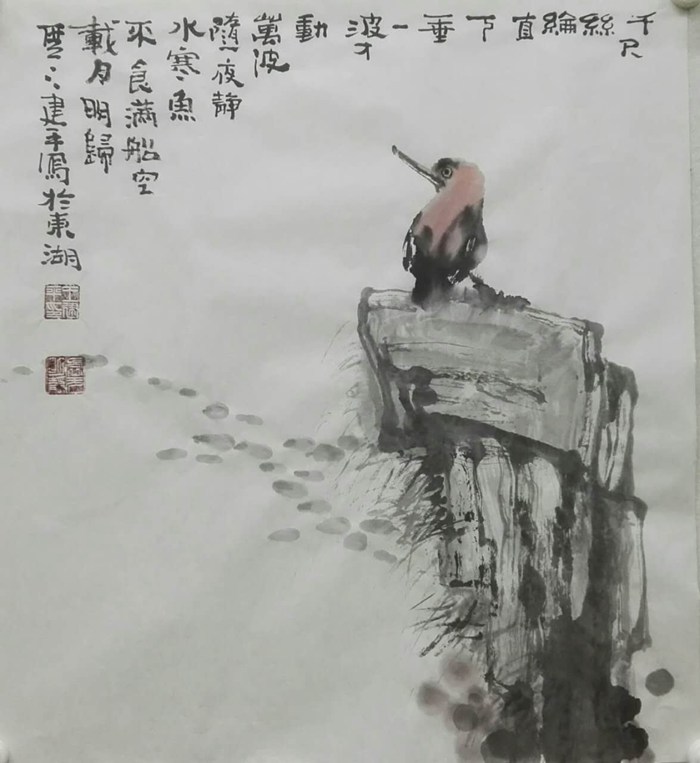 千尺
絲
綸
直
下
垂
一
波才
動
萬波
隨夜静
水寒魚
不食滿船空
載月明歸
建平寫於東湖